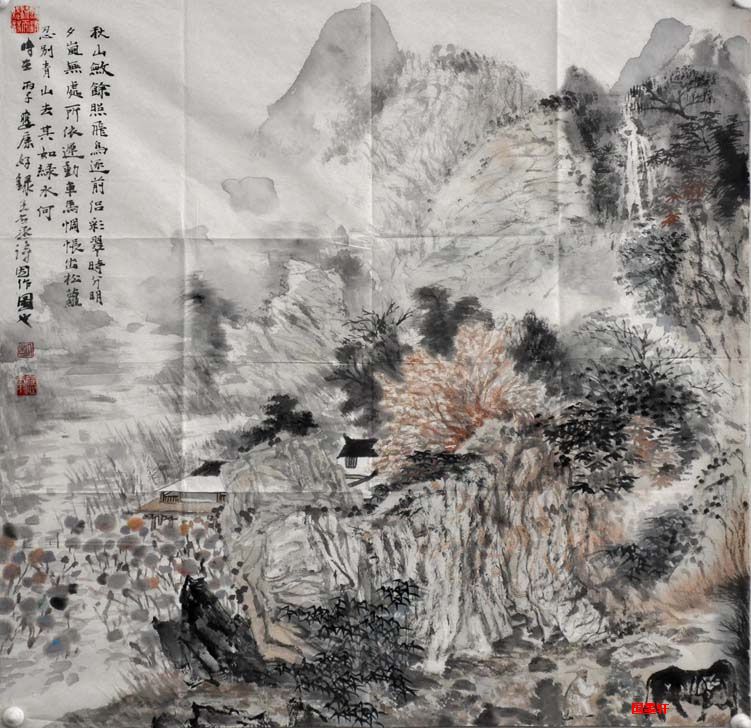 秋山斂餘照飛鳥逐前侣彩翠時分明
夕嵐無處所依遲動車馬惆悵出松蘿
忍别青山去其如綠水何
時在丙子錄王右丞詩因作圖也
国墨轩